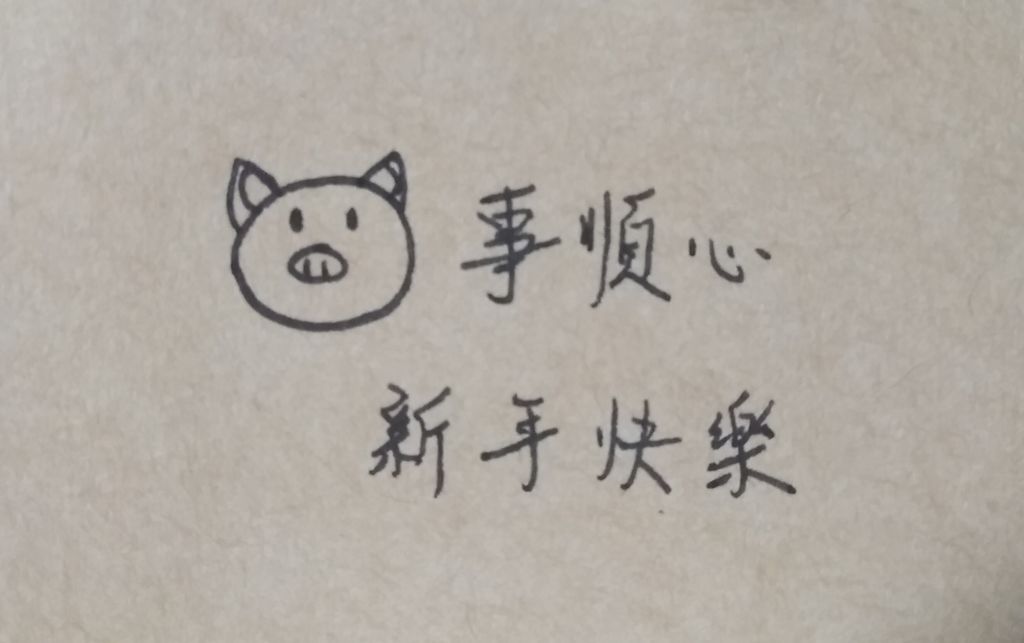 事順心
新年快樂